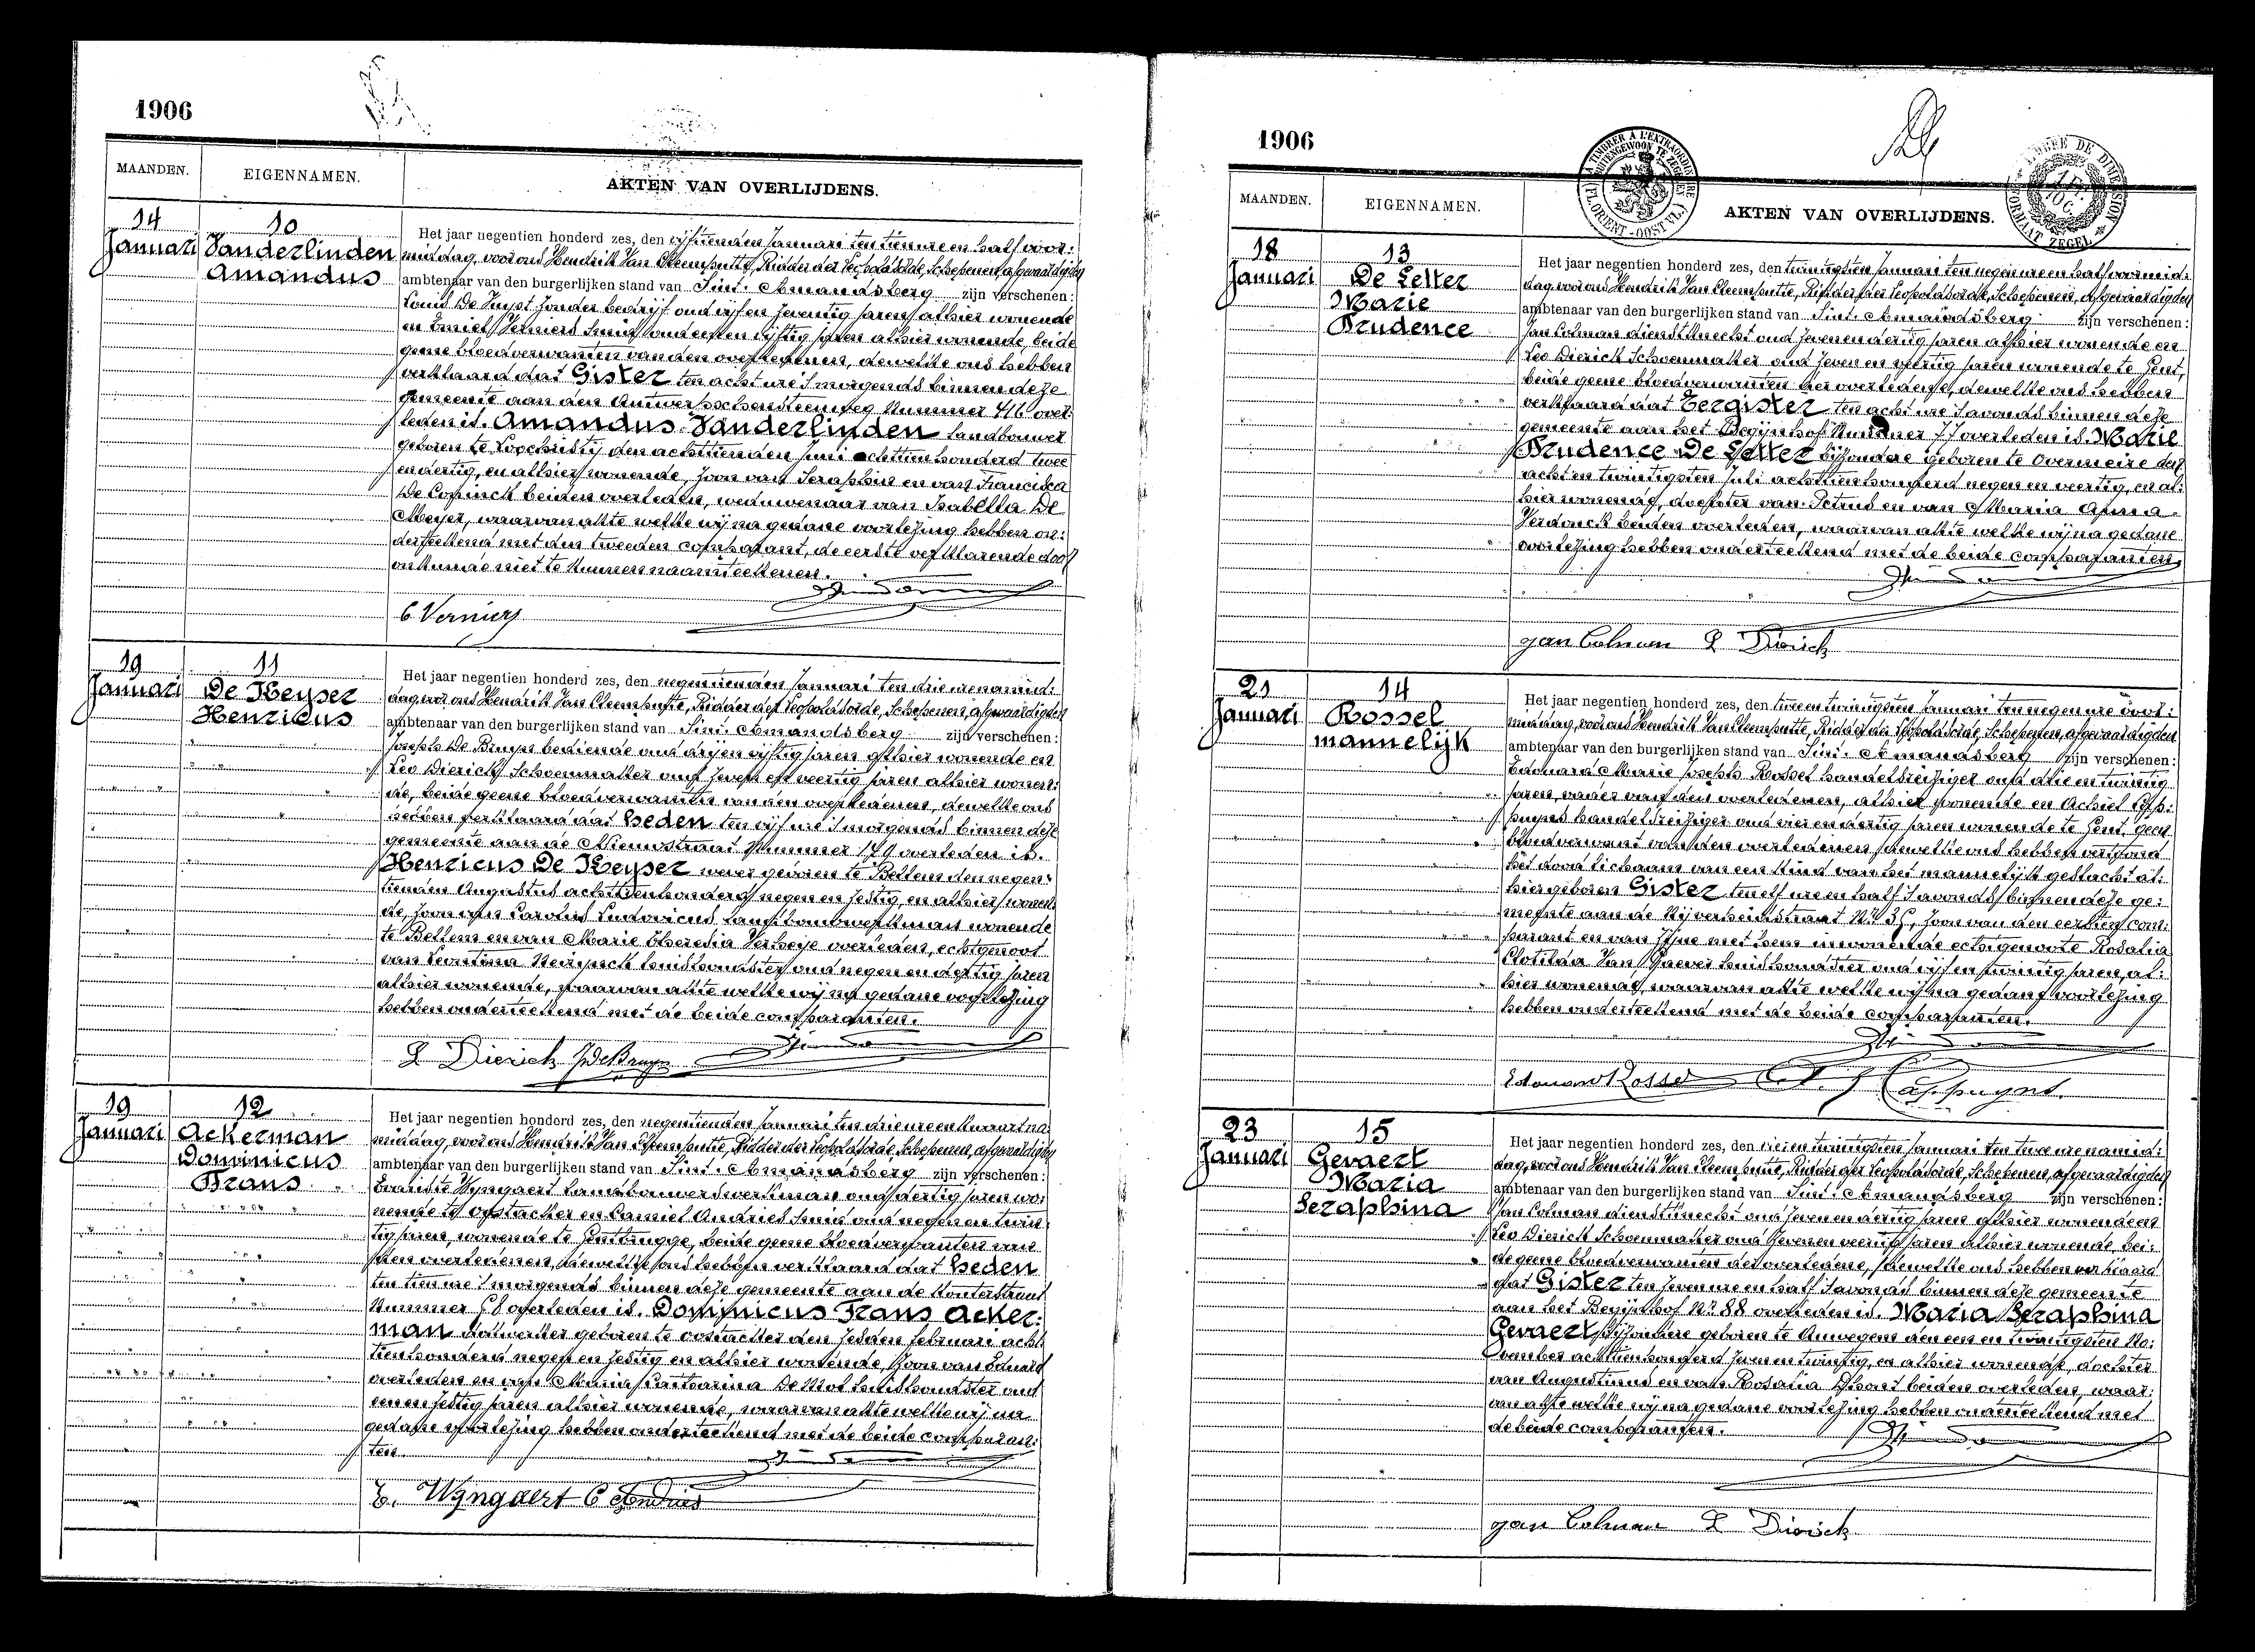 1906
MAANDEN.
EIGENNAMEN.
AKTEN VAN OVERLIJDENS.
14
Januari
10
Vanderlinden
Amandus
Het jaar negentien honderd zes, den vijftienden Januari ten tien ure en half voor:
middag, voor ons Hendrik Van Cleemputte, Ridder der Leopoldsorde, Schepenen, afgevaardigden
ambtenaar van den burgerlijken stand van Sint. Amandsberg zijn verschenen:
De Vuyst zonder bedrijf oud vijf en zeventig jaren alhier wonende
en Emiel Verniers Smid oud een en vijftig jaren alhier wonende, beide
geene bloedverwanten van den overledenen, dewelke ons hebben
verklaard dat Gister ten acht ure 's morgends binnen deze
gemeente aan den Antwerpschensteenweg Nummer 416 over:
leden is. Amandus Vanderlinden landbouwer
geboren te Loochristij den achttienden Juni achttien honderd twee
en dertig, en alhier wonende, zoon van Seraphin en van Francisca
De Coninck beiden overleden, weduwenaar van Isabella De
Meyer, waarvan akte welke wij na gedane voorlezing hebben on:
derteekend met den tweeden comparant, de eerste verklarende door
onkunde niet te kunnen naamteekenen.
E Verniers
19
Januari
11
De Keyser
Henricus
Het jaar negentien honderd zes, den negentienden Januari ten drie ure namid:
dag voor ons Hendrik Van Cleemputte, Ridder der Leopoldsorde, Schepenen, afgevaardigden
ambtenaar van den burgerlijken stand van Sint. Amandsberg zijn verschenen:
Joseph De Bruyn bediende oud drij en vijftig jaren alhier wonende en
Leo Dierick Schoenmaker oud zeven en veertig jaren alhier wonen:
de, beide geene bloedverwanten van den overledenen, dewelke ons
hebben verklaard dat heden ten vijf ure 's morgends binnen deze
gemeente aan de Nieuwstraat Nummer 179 overleden is.
Henricus De Keyser wever geboren te Bellem den negen:
tienden Augustus achttienhonderd negen en zestig, en alhier wonen:
de, zoon van Carolus Ludovicus landbouwwerkman wonende
te Bellem en van Marie Theresia Verheije overleden, echtgenoot
van Leontina Neirynck huishoudster oud negen en dertig jaren
alhier wonende, waarvan akte welke wij na gedane voorlezing
hebben onderteekend met de beide comparanten.
L Dierick J De Bruyn
19
Januari
12
Ackerman
Dominicus
Frans
Het jaar negentien honderd zes, den negentienden Januari ten drie ure en kwaart na
middag, voor ons Hendrik Van Cleemputte, Ridder der Leopoldsorde, Schepenen, afgevaardigden
ambtenaar van den burgerlijken stand van Sint. Amandsberg zijn verschenen:
Wyngaert landbouwerswerkman oud dertig jaren wo:
nende te Oostacker en Camiel Andries Smid oud negen en twin:
tig jaren, wonende te Gentbrugge, beide geene bloedverwanten van
den overledenen, dewelke ons hebben verklaard dat heden
ten tien ure 's morgends binnen deze gemeente aan de Kouterstraat
Nummer overleden is. Dominicus Frans Acker:
man dakwerker geboren te Oostacker den zesden februari acht
tienhonderd negen en zestig en alhier wonende, zoon van Eduard
overleden en van Maria Catharina De Mol huishoudster oud
een en zestig jaren alhier wonende, waarvan akte welke wij na
gedane voorlezing hebben onderteekend met de beide comparan:
ten.
E. Wyngaert C Andries
1906
MAANDEN.
EIGENNAMEN.
AKTEN VAN OVERLIJDENS.
18
Januari
13
De Letter
Marie
Prudence
Het jaar negentien honderd zes, den twintigsten Januari ten negen ure en half voormid:
dag voor ons Hendrik Van Cleemputte, Ridder der Leopoldsorde, Schepenen, afgevaardigden
ambtenaar van den burgerlijken stand van Sint. Amandsberg zijn verschenen:
Jan Colman dienstknecht oud zeven en dertig jaren alhier wonende en
Leo Dierick Schoenmaker oud zeven en veertig jaren wonende te Gent,
beide geene bloedverwanten der overledene, dewelke ons hebben
verklaard dat Eergister ten acht ure 's avonds binnen deze
gemeente aan het Begijnhof Nummer 77 overleden is. Marie
Prudence De Letter bijzondere geboren te Overmeire den
acht en twintigsten Juli achttien honderd negen en veertig, en al:
hier wonende, dochter van Petrus en van Maria Anna
Verdonck beiden overleden, waarvan akte welke wij na gedane
voorlezing hebben onderteekend met de beide comparanten.
jan Colman L Dierick
21
Januari
14
Rossel
mannelijk
Het jaar negentien honderd zes, den twee en twintigsten Januari ten negen ure voor:
middag, voor ons Hendrik Van Cleemputte, Ridder der Leopoldsorde, Schepenen, afgevaardigden
ambtenaar van den burgerlijken stand van Sint. Amandsberg zijn verschenen:
Edouard Marie Joseph Rossel handelsreiziger oud drie en twintig
jaren, vader van den overledenen, alhier wonende en Achiel Cap:
puyns handelsreiziger oud vier en dertig jaren wonende te Gent, geen
bloedverwant van den overledenen, dewelke ons hebben vertoond
het dood lichaam van een kind van het mannelijk geslacht al:
hier geboren Gister ten elf ure en half 's avonds binnen deze ge:
meente aan de Nijverheidstraat Nr 35, zoon van den eersten com:
parant en van zijne met hem inwonende echtgenoote Rosalia
Clotilda Van Gaever huishoudster oud vijf en twintig jaren, al:
hier wonende, waarvan akte welke wij na gedane voorlezing
hebben onderteekend met de beide comparanten.
Edouard Rossel
23
Januari
15
Gevaert
Maria
Seraphina
Het jaar negentien honderd zes, den vier en twintigsten Januari ten twee ure namid:
dag, voor ons Hendrik Van Cleemputte, Ridder der Leopoldsorde, Schepenen, afgevaardigden
ambtenaar van den burgerlijken stand van Sint. Amandsberg zijn verschenen:
Jan Colman dienstknecht oud zeven en dertig jaren alhier wonende en
Leo Dierick Schoenmaker oud zeven en veertig jaren alhier wonende, bei:
de geene bloedverwanten der overledene, dewelke ons hebben verklaard
dat Gister ten zeven ure en half 's avonds binnen deze gemeente
aan het Begijnhof Nr 88 overleden is. Maria Seraphina
Gevaert bijzondere geboren te Anvegem den een en twintigsten No:
vember achttien honderd zeven en twintig, en alhier wonende, dochter
van Augustinus en van Rosalia Dhont beiden overleden, waar:
van akte welke wij na gedane voorlezing hebben onderteekend met
de beide comparanten.
jan Colman L Dierick